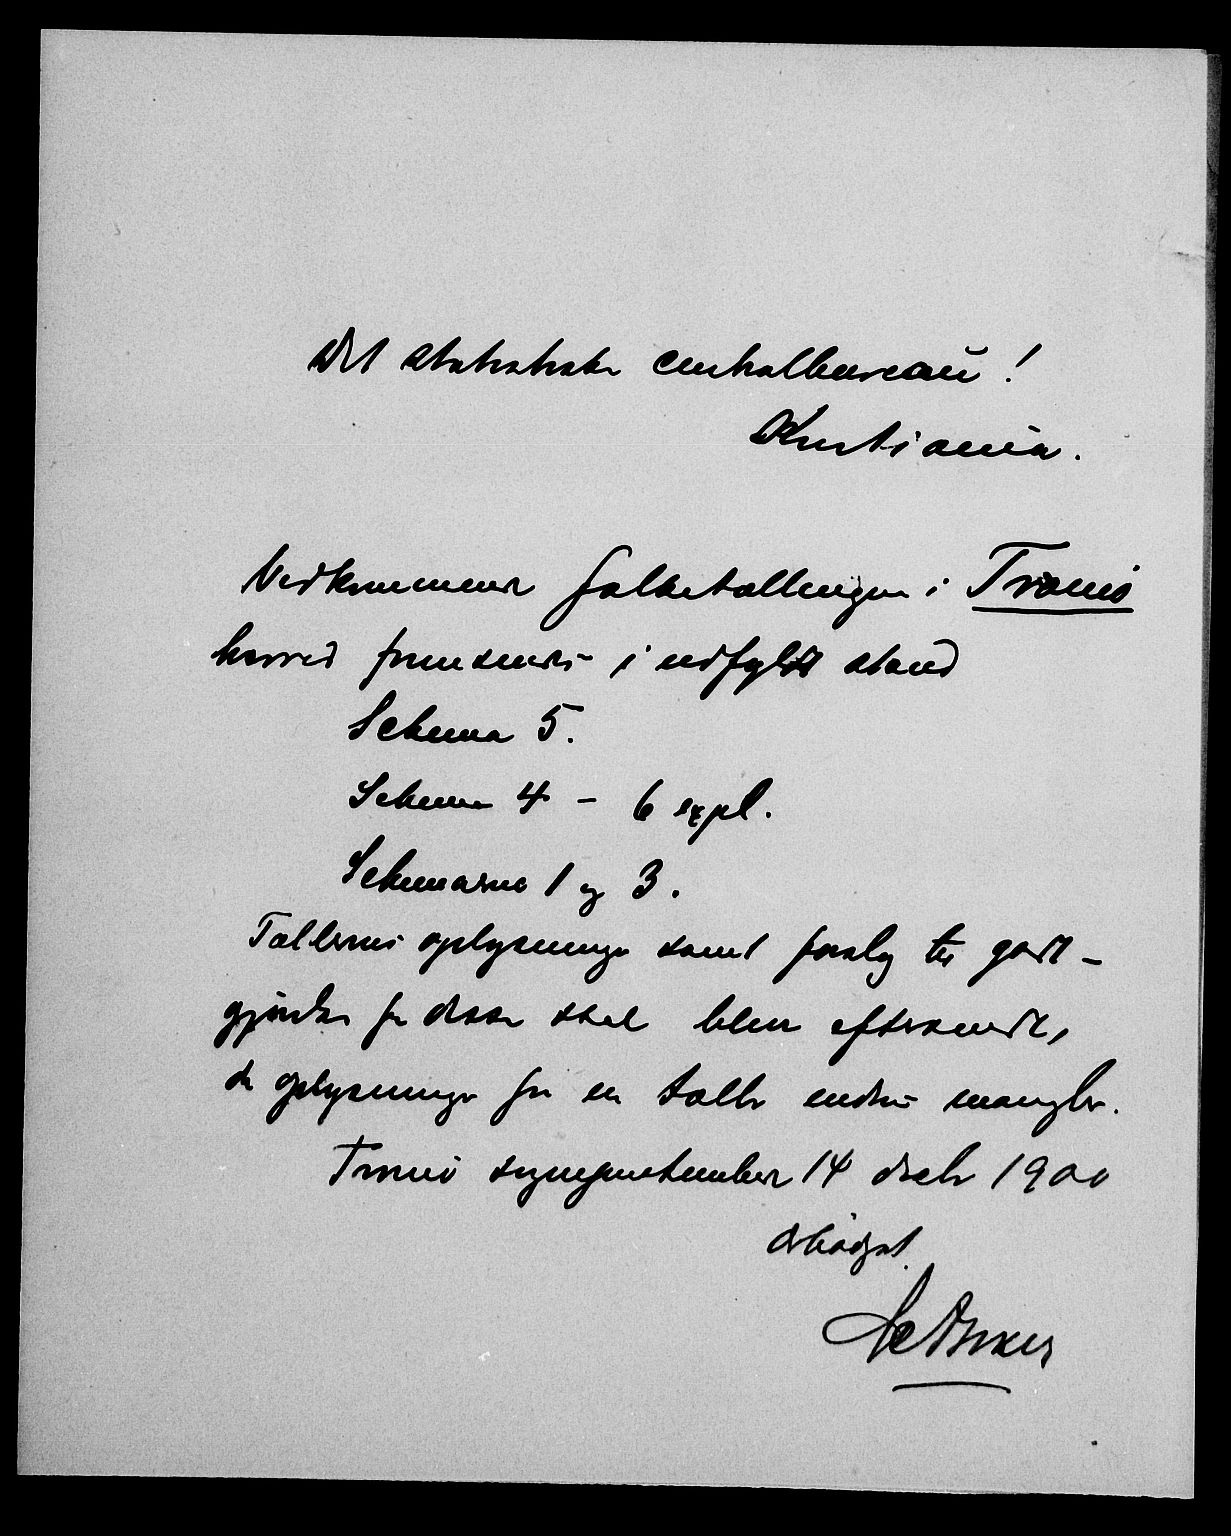 Det statistiske centralbureau!
Kristiania.
Vedkommende folketællingen i Tromø
herred fremsendes i udfyldt stand
Schema 5.
Schema 4 - 6 expl.
Schemaerne 1 og 3.
Tællernes oplysninger samt forslag til godt-
gjørelse for disse skal blive eftersendt,
da oplysninger fra en tæller endnu mangler.
Tromø 14 decbr 1900
Ærbødigst